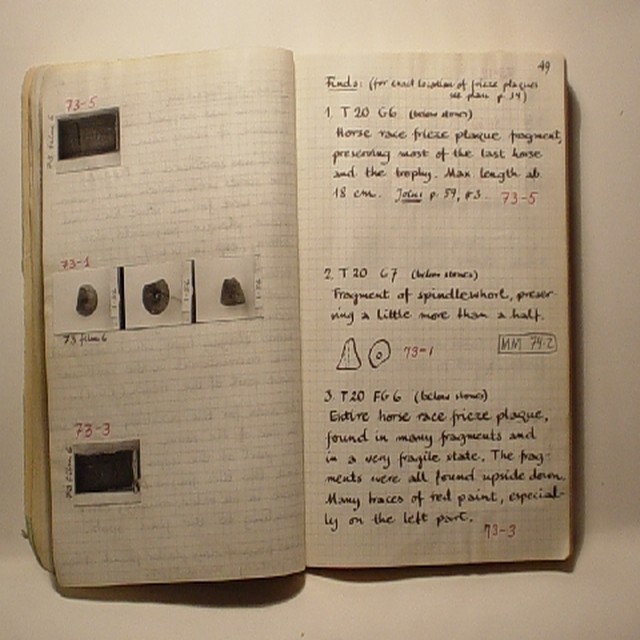 73-5
73 film 6
73-1
73 film 6
73-3
73 film 6
49
Finds: (for exact location of frieze plaques
see plan p. 14)
1. T 20 G6 (below stones)
Horse race frieze plaque fragment,
preserving most of the last horse
and the trophy. Max length ab.
18 cm. p. 59, #3. 73-5
2. T 20 G7 (below stones)
Fragment of spindlewhorl, preser-
ving a little more than a half.
73-1
MM 74-2
3. T20 FG 6 (below stones)
Entire horse race frieze plaque,
found in many fragments and
in a very fragile state. The frag-
ments were all found upside down.
Many traces of red paint, especial-
ly on the left part.
73-3